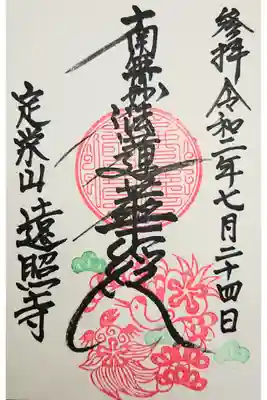 參拜令和二年七月二十四日
南無妙法蓮華経
定栄山遠照寺